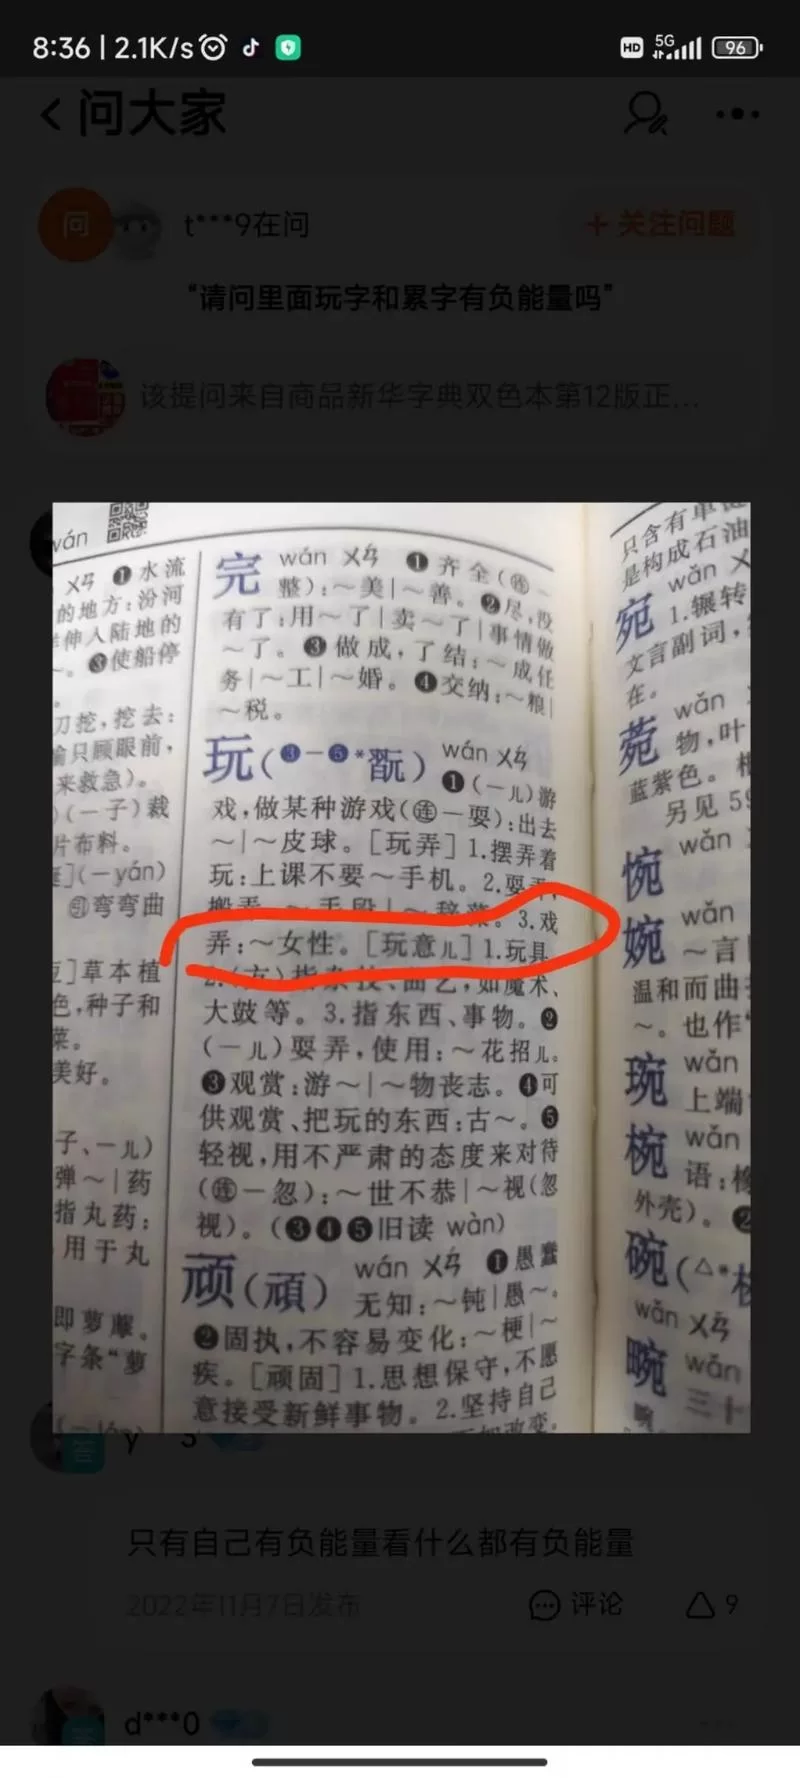 8:36 | 2.1K/s
HD 5G 96
问大家
问 t***9在问 + 关注问题
“请问里面玩字和累字有负能量吗”
该提问来自商品新华字典双色本第12版正...
wán
ㄨㄢ ❶水流
的地方：汾河
伸入陆地的
～。❸使船停
刀挖，挖去：
只顾眼前，
来救急）。
（一子）裁
片布料。
（一yán）
弯弯曲
］草本植
色，种子和
菜。
美好。
子、一儿）
弹～｜药
指丸药：
用于丸
即萝藦。
字条“萝
完 wán ㄨㄢ ❶齐全（㊣一
整）：～美｜～善。❷尽，没
有了：用～了｜卖～了｜事情做
～了。❸做成，了结：～成任
务｜～工｜～婚。❹交纳：～粮｜
～税。
玩（❸－❺*翫） wán ㄨㄢ
❶（一儿）游
戏，做某种游戏（㊣一耍）：出去
～｜～皮球。［玩弄］1.摆弄着
玩：上课不要～手机。2.耍弄，
搬弄：～手段｜～辞藻。3.戏
弄：～女性。［玩意儿］1.玩具
2.（方）指杂技、曲艺，如魔术、
大鼓等。3.指东西、事物。❷
（一儿）耍弄，使用：～花招儿。
❸观赏：游～｜～物丧志。❹可
供观赏、把玩的东西：古～。❺
轻视，用不严肃的态度来对待
（㊣一忽）：～世不恭｜～视（忽
视）。（❸❹❺旧读 wàn）
顽（頑） wán ㄨㄢ ❶愚蠢
无知：～钝｜愚～。
❷固执，不容易变化：～梗｜～
疾。［顽固］1.思想保守，不愿
意接受新鲜事物。2.坚持自己
只含有单键
是构成石油
宛 wǎn ㄨ
1.辗转
文言副词，
在。
菀 wǎn
物，叶
蓝紫色。
另见 59
惋 wǎn
婉 wǎn
～言
温和而曲
～。也作
琬 wǎn
上端
椀 wǎn
语：橡
外壳）。❷
碗（△*
wǎn ㄨㄢ
畹 wǎn
三十
答 y***3
只有自己有负能量看什么都有负能量
2022年11月7日发布 评论 9
d***0